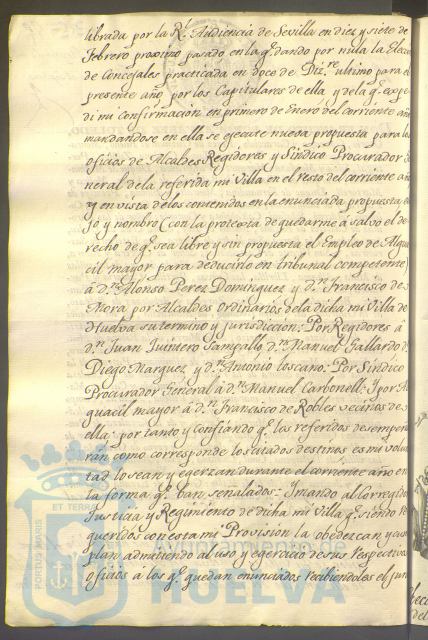 librada por la Rl. Audiencia de Sevilla en diez y siete de
Febrero proximo pasado en la qe. dando por nula la Elecc
de Concejales practicada en doce de Dizre. ultimo para el
presente año, por los Capitulares de ella y de la qe. expe
dí mi confirmacion en primero de Enero del corriente año
mandandose en ella se egecute nueva propuesta para los
oficios de Alcaldes Regidores y Sindico Procurador Ge
neral de la referida mi Villa en el resto del corriente año
y en vista de los contenidos en la enunciada propuesta eli
jo y nombro (con la protexta de quedarme à salvo el de
recho de qe. sea libre y sin propuesta el Empleo de Algua
cil mayor para deducirlo en tribunal competente)
á dn. Alonso Perez Dominguez y dn. Francisco de
Mora por Alcaldes Ordinarios de la dicha mi Villa de
Huelva su termino y jurisdiccion: Por Regidores á
dn. Juan Quintero dn. Manuel Gallardo dn.
Diego Marquez y dn. Antonio Toscano: Por Sindico
Procurador General á dn. Manuel Carbonell: Y por Al
guacil mayor á dn. Francisco de Robles vecinos de
ella: por tanto y confiando qe. los referidos desempeña
ran como corresponde los citados destinos es mi volun
tad lo sean y egerzan durante el corriente año en
la forma qe. van señalados: Y mando al Corregidor
Justicia y Regimiento de dicha mi Villa qe. siendo re
queridos con esta mi Provision la obedezcan y cum
plan admitiendo al uso y egercicio de sus respectivos
oficios á los qe. quedan enunciados recibiendoles el jura
PORTUS MARIS
ET TERRAE
Ayuntamiento de
HUELVA